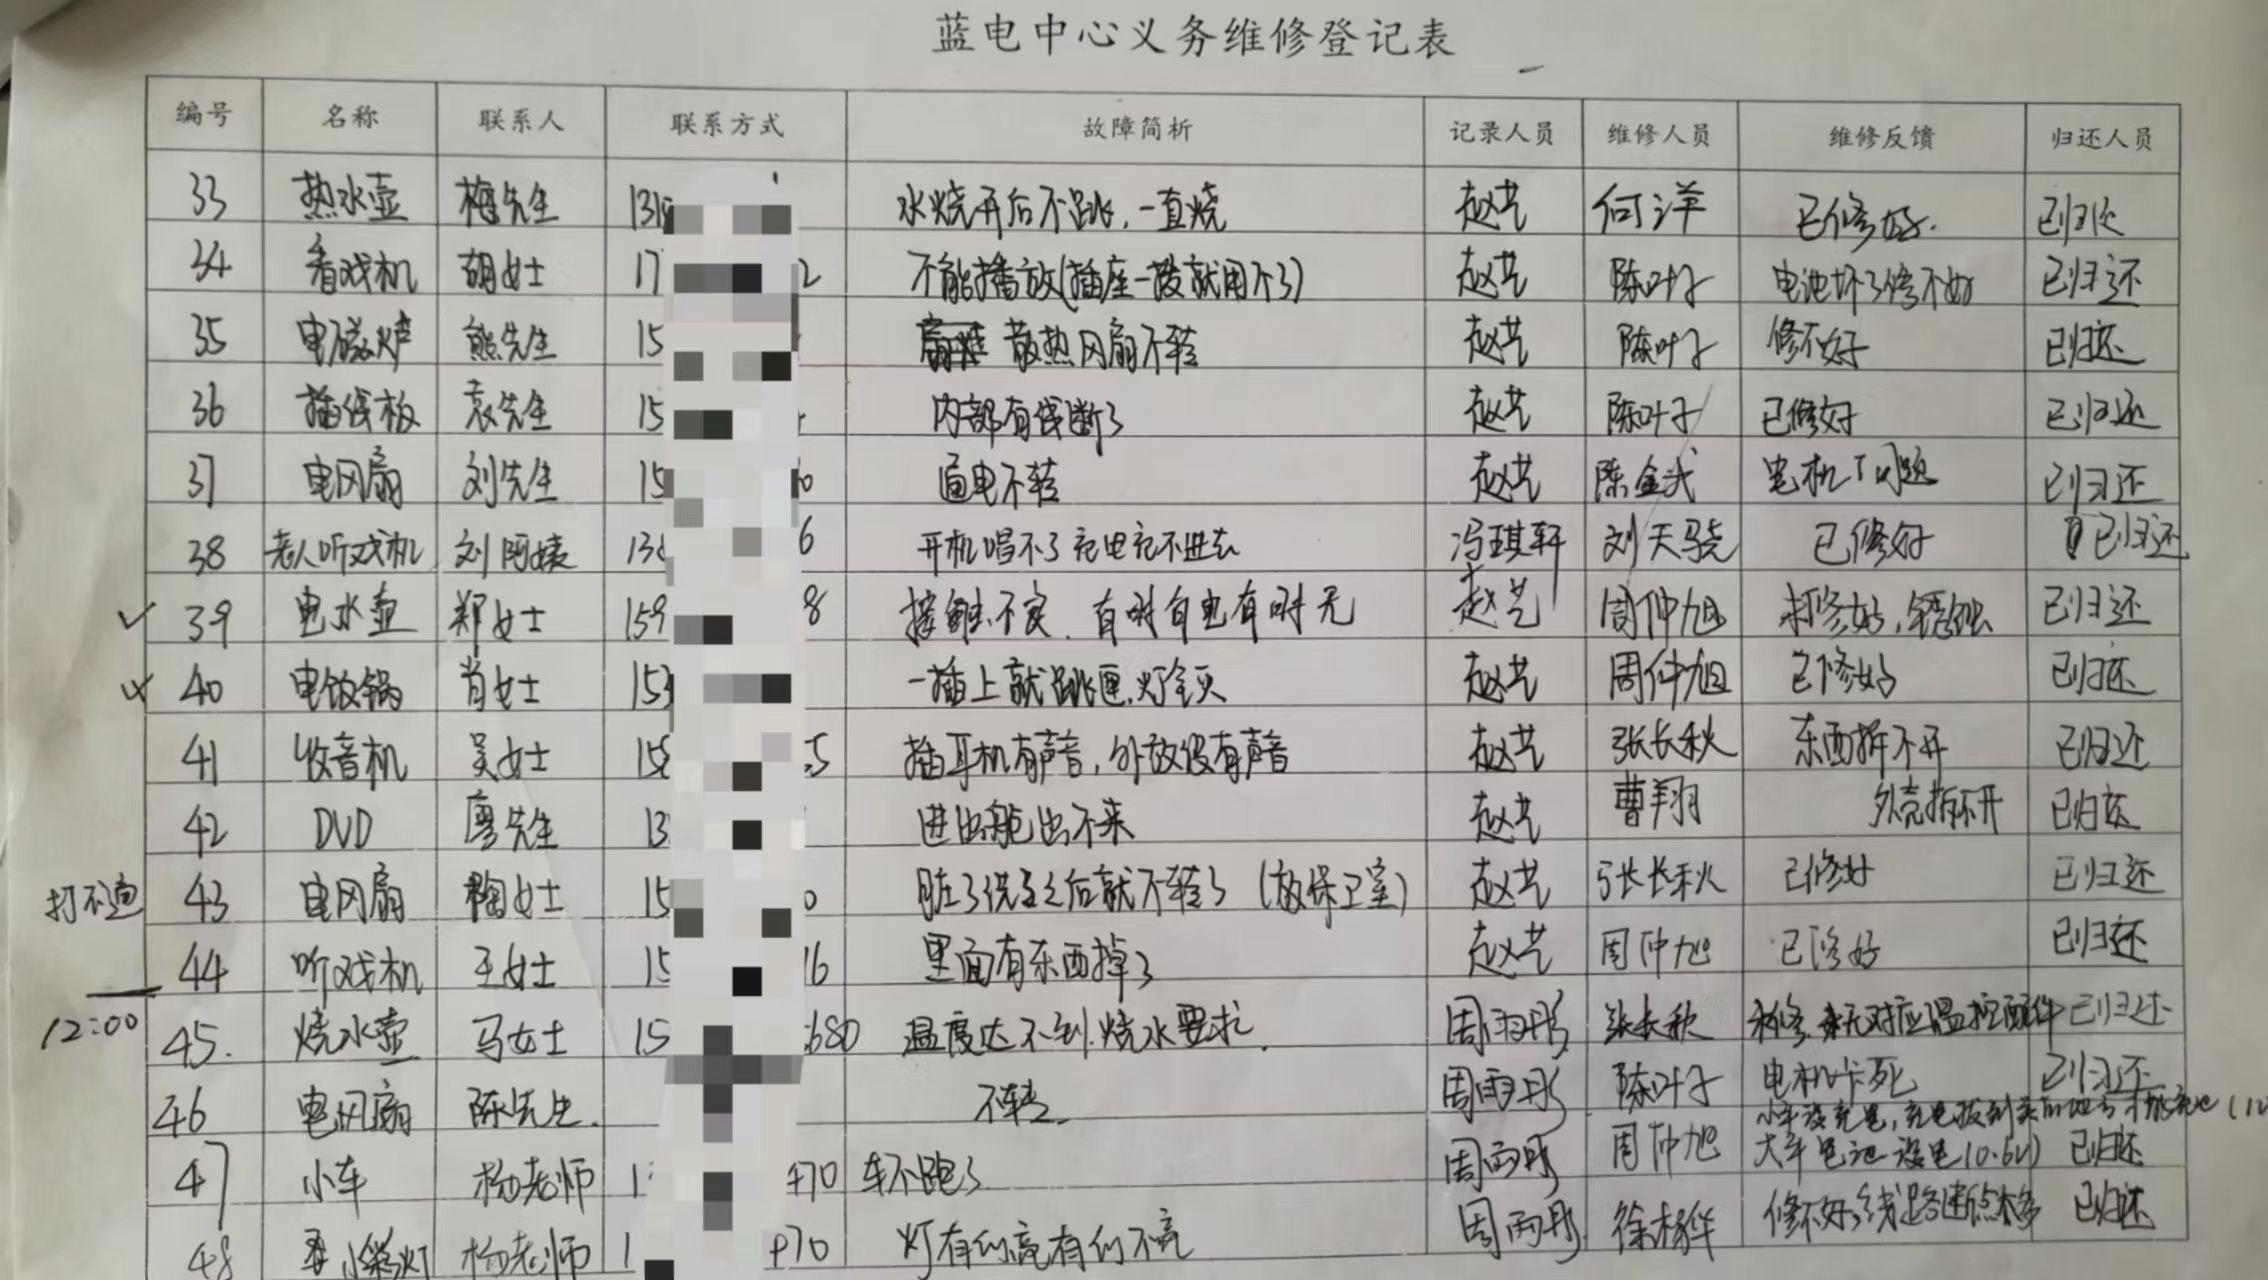 蓝电中心义务维修登记表
编号 名称 联系人 联系方式 故障简析 记录人员 维修人员 维修反馈 归还人员
33 热水壶 梅先生 131 水烧开后不跳,一直烧 赵艺 何洋 已修好. 已归还
34 看戏机 胡女士 17 2 不能播放(插座一拔就用不了) 赵艺 陈叶子 电池坏了修不好 已归还
35 电磁炉 熊先生 15 散热风扇不转 赵艺 陈叶子 修不好 已归还
36 插线板 袁先生 15 内部有线断了 赵艺 陈叶子 已修好 已归还
37 电风扇 刘先生 15 0 通电不转 赵艺 陈金武 电机 问题 已归还
38 老人听戏机 刘阿姨 138 6 开机唱不了充电充不进去 冯琪轩 刘天骁 已修好 已归还
39 电水壶 郑女士 159 8 接触不良.有时有电有时无 赵艺 周仲旭 修好,锈蚀 已归还
40 电饭锅 肖女士 153 一插上就跳闸.灯全灭 赵艺 周仲旭 已修好 已归还
41 收音机 吴女士 15 5 插耳机有声音,外放没有声音 赵艺 张长秋 东西拆不开 已归还
42 DVD 廖先生 13 进出舱出不来 赵艺 曹翔 外壳拆不开 已归还
打不通 43 电风扇 陶女士 15 0 脏了洗了之后就不转了(放保卫室) 赵艺 张长秋 已修好 已归还
44 听戏机 王女士 15 16 里面有东西掉了 赵艺 周仲旭 已修好 已归还
12:00 45. 烧水壶 马女士 15 680 温度达不到烧水要求. 周雨彤 张长秋 无对应温控配件 已归还
46 电风扇 陈先生. 不转. 周雨彤 陈叶子 电机卡死 已归还
小车没充电,充电 才能充电
47 小车 杨老师 1 470 车不跑了 周雨彤 周仲旭 大车电池没电(0.6V) 已归还
48 小彩灯 杨老师 1 470 灯有的亮有的不亮 周雨彤 徐杨华 修不好,线路断点太多 已归还